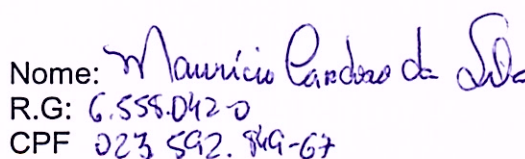 Nome: Maurício Cardoso da Silva
R.G: 6.558.042-0
CPF 023 592.849-67